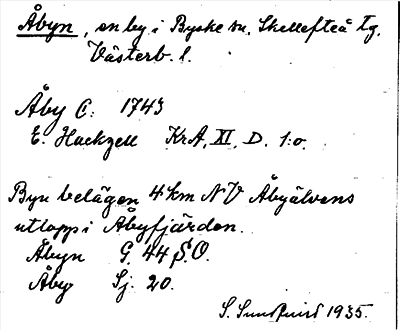 Åbyn, en by i Byske sn, Skellefteå tg,
Västerb. l.
Åby C: 1743
E. Hackzell KrA, XI, D. 1:o.
Byn belägen 4 km NV Åbyälvens
utlopp i Åbyfjärden.
Åbyn G. 44 S.O.
Åby Sj. 20.
S. Sundquist 1935.